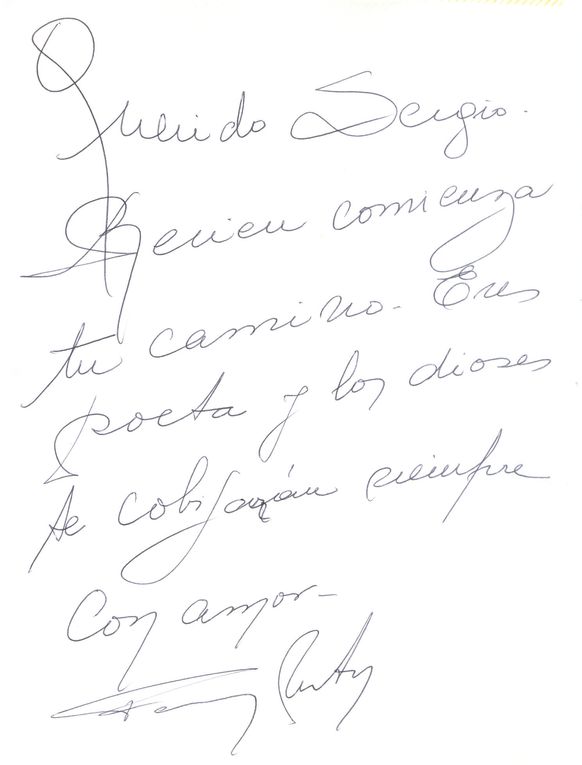 Querido Sergio.
Recien comienza
tu camino. Eres
poeta y los dioses
te cobijarán siempre
Con amor-